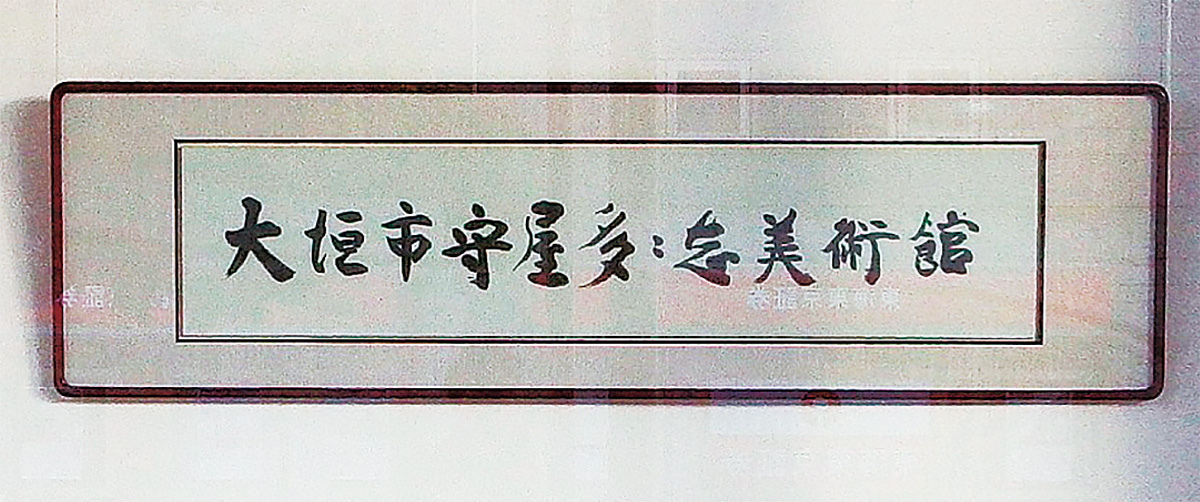 大垣市守屋多々志美術館